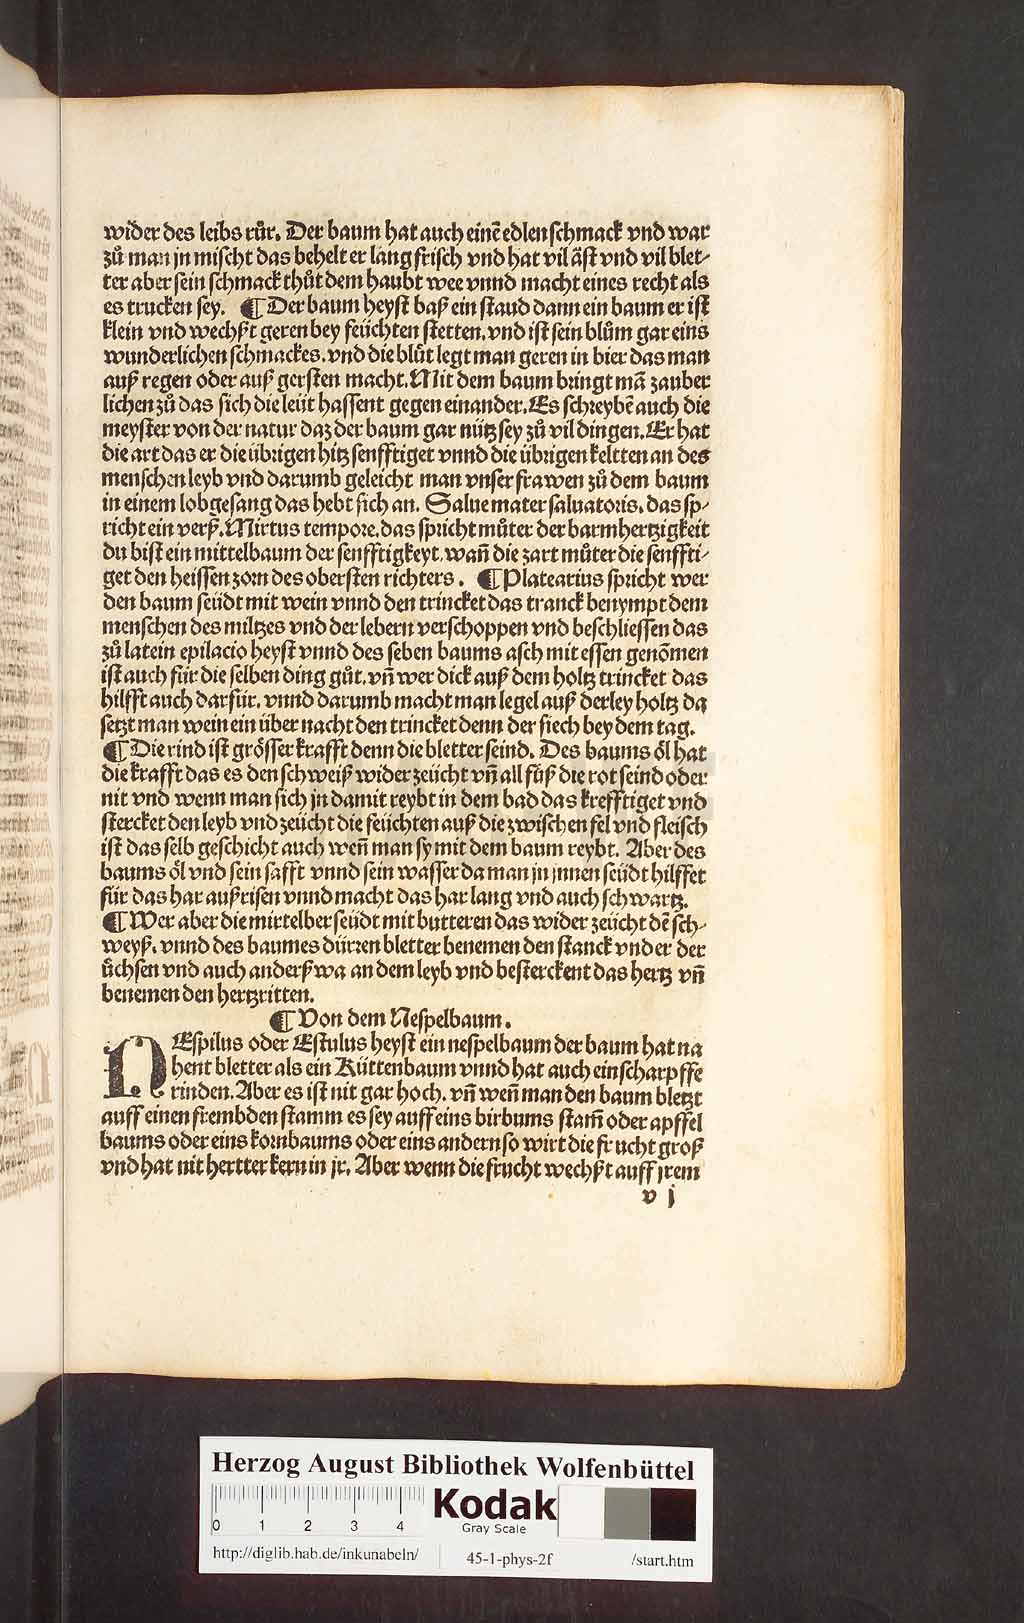 wider des leibs růr. Der baum hat auch einē edlen schmack vnd war
zů man jn mischt das behelt er lang frisch vnd hat vil äst vnd vil blet-
ter aber sein schmack thůt dem haubt wee vnnd macht eines recht als
es trucken sey. ¶ Der baum heyst baß ein staud dann ein baum er ist
klein vnd wechßt geren bey feüchten stetten. vnd ist sein blům gar eins
wunderlichen schmackes. vnd die blůt legt man geren in bier das man
auß regen oder auß gersten macht. Mit dem baum bringt mā zauber
lichen zů das sich die leüt hassent gegen einander. Es schreybē auch die
meyster von der natur daz der baum gar nütz sey zů vil dingen. Er hat
die art das er die übrigen hitz senfftiget vnnd die übrigen keltten an des
menschen leyb vnd darumb geleicht man vnser frawen zů dem baum
in einem lobgesang das hebt sich an. Salue mater saluatoris. das sp-
richt ein verß. Mirtus tempore. das spricht můter der barmhertzigkeit
du bist ein mittelbaum der senfftigkeyt. wañ die zart můter die senffti-
get den heissen zorn des obersten richters. ¶ Platearius spricht wer
den baum seüdt mit wein vnnd den trincket das tranck benympt dem
menschen des miltzes vnd der lebern verschoppen vnd beschliessen das
zů latein epilacio heyst vnnd des seben baums asch mit essen genōmen
ist auch für die selben ding gůt. vñ wer dick auß dem holtz trincket das
hilfft auch darfür. vnnd darumb macht man legel auß derley holtz da
setzt man wein ein über nacht den trincket denn der siech bey dem tag.
¶ Die rind ist grösser krafft denn die bletter seind. Des baums öl hat
die krafft das es den schweiß wider zeücht vñ all füß die rot seind oder
nit vnd wenn man sich jn damit reybt in dem bad das krefftiget vnd
stercket den leyb vnd zeücht die feüchten auß die zwischen fel vnd fleisch
ist das selb geschicht auch weñ man sy mit dem baum reybt. Aber des
baums öl vnd sein safft vnnd sein wasser da man jn jnnen seüdt hilffet
für das har außrisen vnnd macht das har lang vnd auch schwartz.
¶ Wer aber die mirtelber seüdt mit butteren das wider zeücht dē sch-
weyß. vnnd des baumes dürren bletter benemen den stanck vnder der
üchsen vnd auch anderßwa an dem leyb vnd besterckent das hertz vñ
benemen den hertzritten.
¶ Von dem Nespelbaum.
NEspilus oder Estulus heyst ein nespelbaum der baum hat na
hent bletter als ein Küttenbaum vnnd hat auch ein scharpffe
rinden. Aber es ist nit gar hoch. vñ weñ man den baum bletzt
auff einen frembden stamm es sey auff eins birbums stam̄ oder apffel
baums oder eins kornbaums oder eins andern so wirt die frucht groß
vnd hat nit hertter kern in jr. Aber wenn die frucht wechßt auff jrem
v j
Herzog August Bibliothek Wolfenbüttel
0 1 2 3 4
Kodak
Gray Scale
http://diglib.hab.de/inkunabeln/ 45-1-phys-2f /start.htm